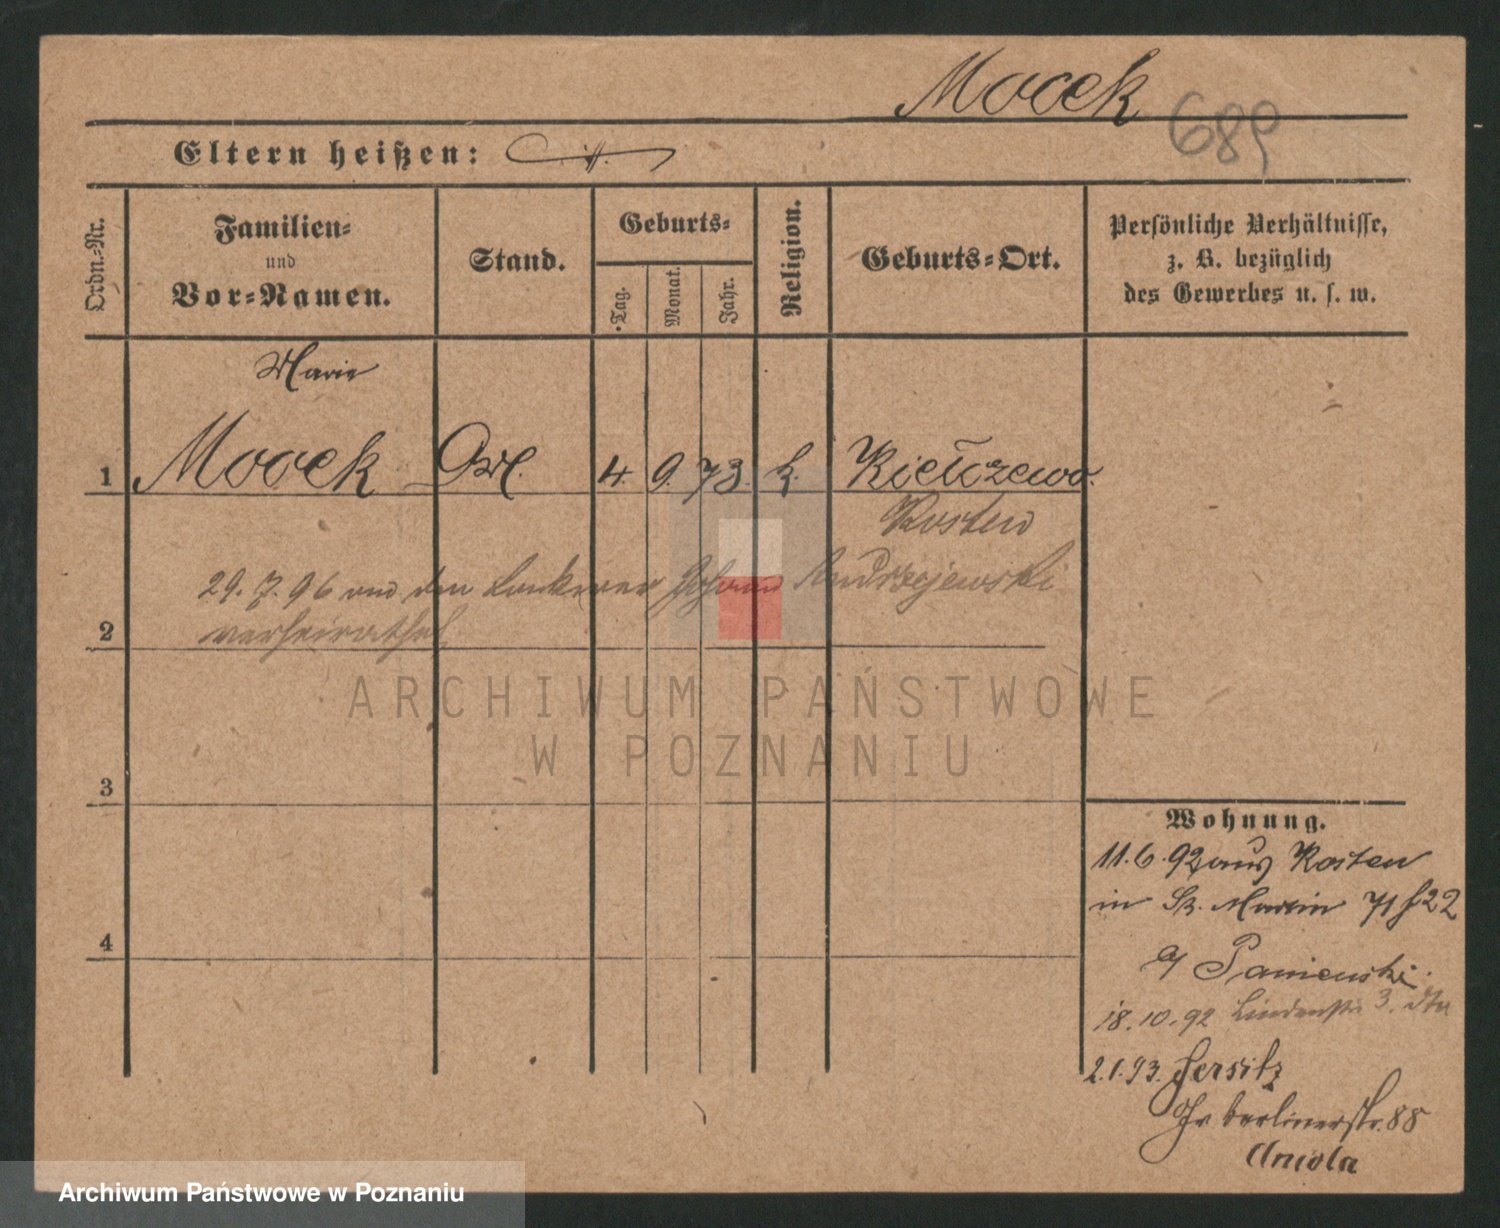 Mocek
689
Eltern heißen:
Ordn.-Nr.
Familien-
und
Vor-Namen.
Stand.
Geburts-
Tag.
Monat.
Jahr.
Religion.
Geburts-Ort.
Persönliche Verhältnisse,
z. B. bezüglich
des Gewerbes u. s. w.
Marie
1 Mocek 4. 9. 73. k. Kiełczewo.
Kosten
29. 7. 96 den Johann Andrzejewski
2 verheirathet
ARCHIWUM PAŃSTWOWE
W POZNANIU
3
Wohnung.
11.6.92 aus Kosten
in St. Martin 71
4
18.10.92 Lindenstr 3.
2.1.93. Jersitz
Gr berlinerstr. 88
Aniola
Archiwum Państwowe w Poznaniu